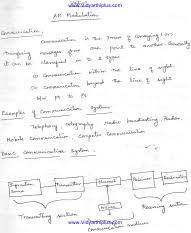 www.Vidyarthiplus.com
AM Modulation
Communication:
Communication is the process of conveying (or)
transferring messages from one point to another. Generally
it can be classified in to 2 types
(i) Communication within the line of sight
(ii) Communication beyond the line of sight
Examples of Communication Systems
Telephony, Telegraphy, Radio broadcasting, Radar,
Mobile Communication, Computer Communication
Basic Communication System
Transmitter
Channel
Receiver
Destination
Noise
Transmitting section
Receiving section
Communication medium
www.Vidyarthiplus.com